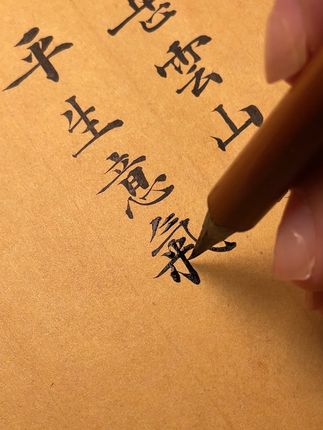 雲山
平生意氣